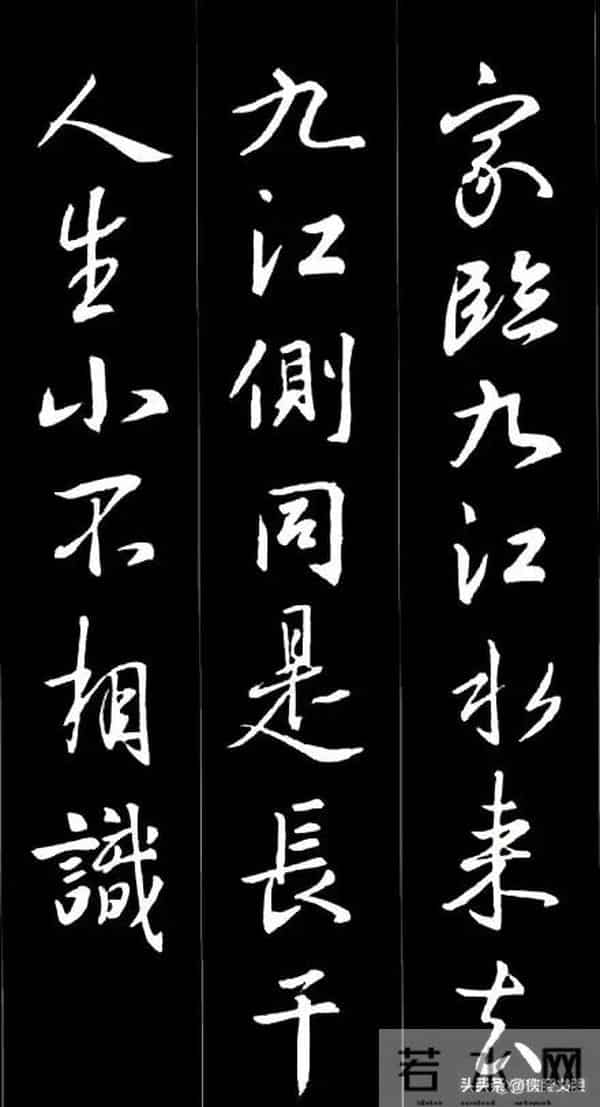 家臨九江水来去
九江側同是長干
人生小不相識
若水网
头条@